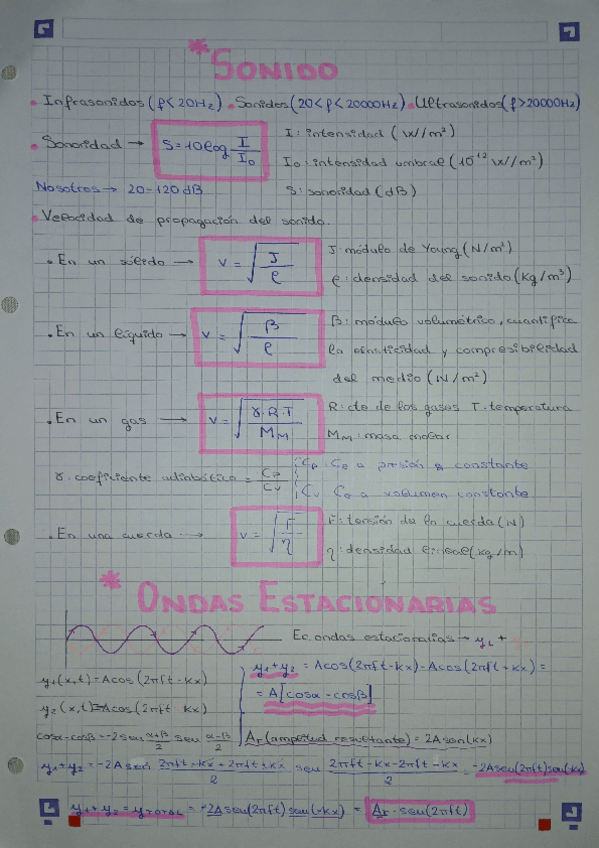 *SONIDO
• Infrasonidos (f<20Hz) • Sonidos (20<f<20000Hz) • Ultrasonidos (f>20000Hz)
• Sonoridad → S=10log I/I₀ I: intensidad (W/m²)
I₀: intensidad umbral (10⁻¹² W/m²)
Nosotros → 20-120 dB S: sonoridad (dB)
• Velocidad de propagación del sonido.
• En un sólido → v = √(J/ρ) J: módulo de Young (N/m²)
ρ: densidad del sonido (Kg/m³)
• En un líquido → v = √(β/ρ) β: módulo volumétrico, cuantifica
la elasticidad y compresibilidad
del medio (N/m²)
• En un gas → v = √(γ·R·T/M_M) R: cte de los gases T: temperatura
M_M: masa molar
γ: coeficiente adiabático = Cp/Cv Cp: Ce a presión constante
Cv Ce a volumen constante
• En una cuerda → v = √(F/η) F: tensión de la cuerda (N)
η: densidad lineal (kg/m)
*ONDAS ESTACIONARIAS
Ec. ondas estacionarias → y₁ +
y₁(x,t) = Acos(2πft-kx) y₁+y₂ = Acos(2πft-kx) - Acos(2πft+kx) =
y₂(x,t) = Acos(2πft kx) = A[cosα - cosβ]
cosα-cosβ = -2sen α+β/2 sen α-β/2 Ar(amplitud resultante) = 2Asen(kx)
y₁+y₂ = -2A sen 2πft-kx+2πft+kx/2 sen 2πft-kx-2πft-kx/2 = -2Asen(2πft)sen(-kx)
y₁+y₂ = y total = -2Asen(2πft)sen(-kx) = Ar·sen(2πft)